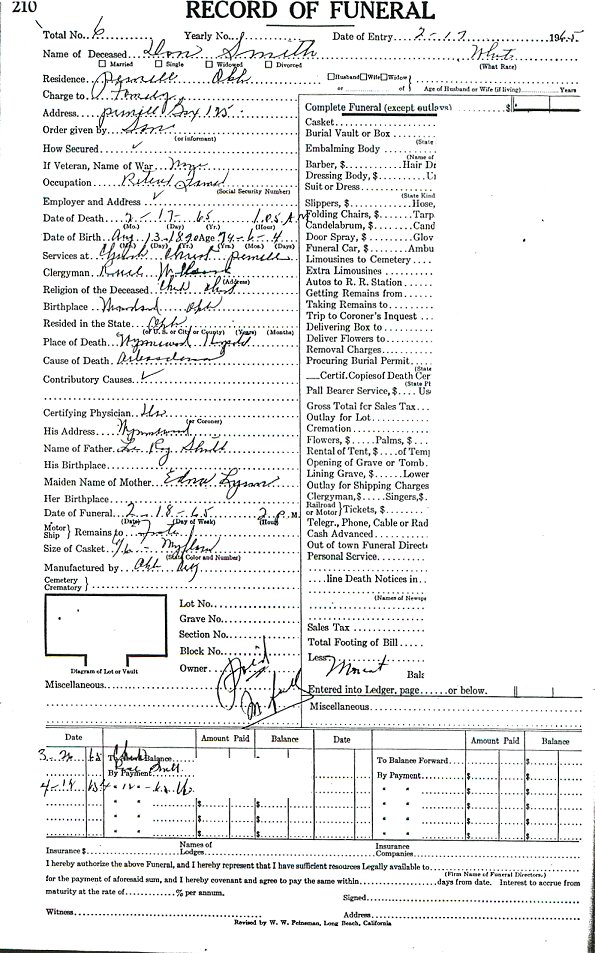 210
RECORD OF FUNERAL
Total No. 6 Yearly No. Date of Entry 2-17 1965
Name of Deceased Don Smith White
Married Single Widowed Divorced (What Race)
Residence Okla
Husband Wife Widow or of Age of Husband or Wife (if living) Years
Charge to Family
Address Box 125
Order given by Son
(or informant)
How Secured ✓
If Veteran, Name of War None
Occupation Retired
(Social Security Number)
Employer and Address ✓
Date of Death 2-17-65 1:05 A M
(Mo.) (Day) (Yr.) (Hour)
Date of Birth Aug 13-1890 Age 74-6-4
(Mo.) (Day) (Yr.) (Yrs.) (Mos.) (Days)
Services at Church Christ
(Address)
Clergyman
Religion of the Deceased Church Christ
Birthplace Okla
Resided in the State Okla
(or U. S. or City or County) (Years) (Months)
Place of Death Wynnewood Hospital
Cause of Death
Contributory Causes ✓
Certifying Physician
(or Coroner)
His Address Wynnewood
Name of Father
His Birthplace
Maiden Name of Mother Edna
Her Birthplace
Date of Funeral 2-18-65 2 P. M.
(Date) (Day of Week) (Hour)
Motor Ship Remains to
Size of Casket
(State Color and Number)
Manufactured by Okla
Cemetery Crematory
Lot No.
Grave No.
Section No.
Block No.
Owner
Diagram of Lot or Vault
Miscellaneous Paid
Complete Funeral (except outlays) $
Casket
Burial Vault or Box
(State
Embalming Body
(Name of
Barber, $ Hair Dr
Dressing Body, $ U
Suit or Dress
(State Kind
Slippers, $ Hose,
Folding Chairs, $ Tarp
Candelabrum, $ Cand
Door Spray, $ Glov
Funeral Car, $ Ambu
Limousines to Cemetery
Extra Limousines
Autos to R. R. Station
Getting Remains from
Taking Remains to
Trip to Coroner's Inquest
Delivering Box to
Deliver Flowers to
Removal Charges
Procuring Burial Permit
(State
Certif. Copies of Death Cer
(State Pl
Pall Bearer Service, $ Us
Gross Total for Sales Tax
Outlay for Lot
Cremation
Flowers, $ Palms, $
Rental of Tent, $ of Temp
Opening of Grave or Tomb
Lining Grave, $ Lower
Outlay for Shipping Charges
Clergyman, $ Singers, $
Railroad or Motor Tickets, $
Telegr., Phone, Cable or Rad
Cash Advanced
Out of town Funeral Direct
Personal Service
line Death Notices in
(Names of Newsp
Sales Tax
Total Footing of Bill
Less
Bal
Entered into Ledger, page or below.
Miscellaneous
Date Amount Paid Balance Date Amount Paid Balance
65 To Balance $ To Balance Forward $
By Payment By Payment $
" " $ " " $
" " $ " " $
" " $ " " $
" " $ " " $
Insurance $ Names of Lodges Insurance Companies
I hereby authorize the above Funeral, and I hereby represent that I have sufficient resources Legally available to
(Firm Name of Funeral Directors.)
for the payment of aforesaid sum, and I hereby covenant and agree to pay the same within days from date. Interest to accrue from
maturity at the rate of % per annum.
Signed
Witness Address
Revised by W. W. Peinsman, Long Beach, California